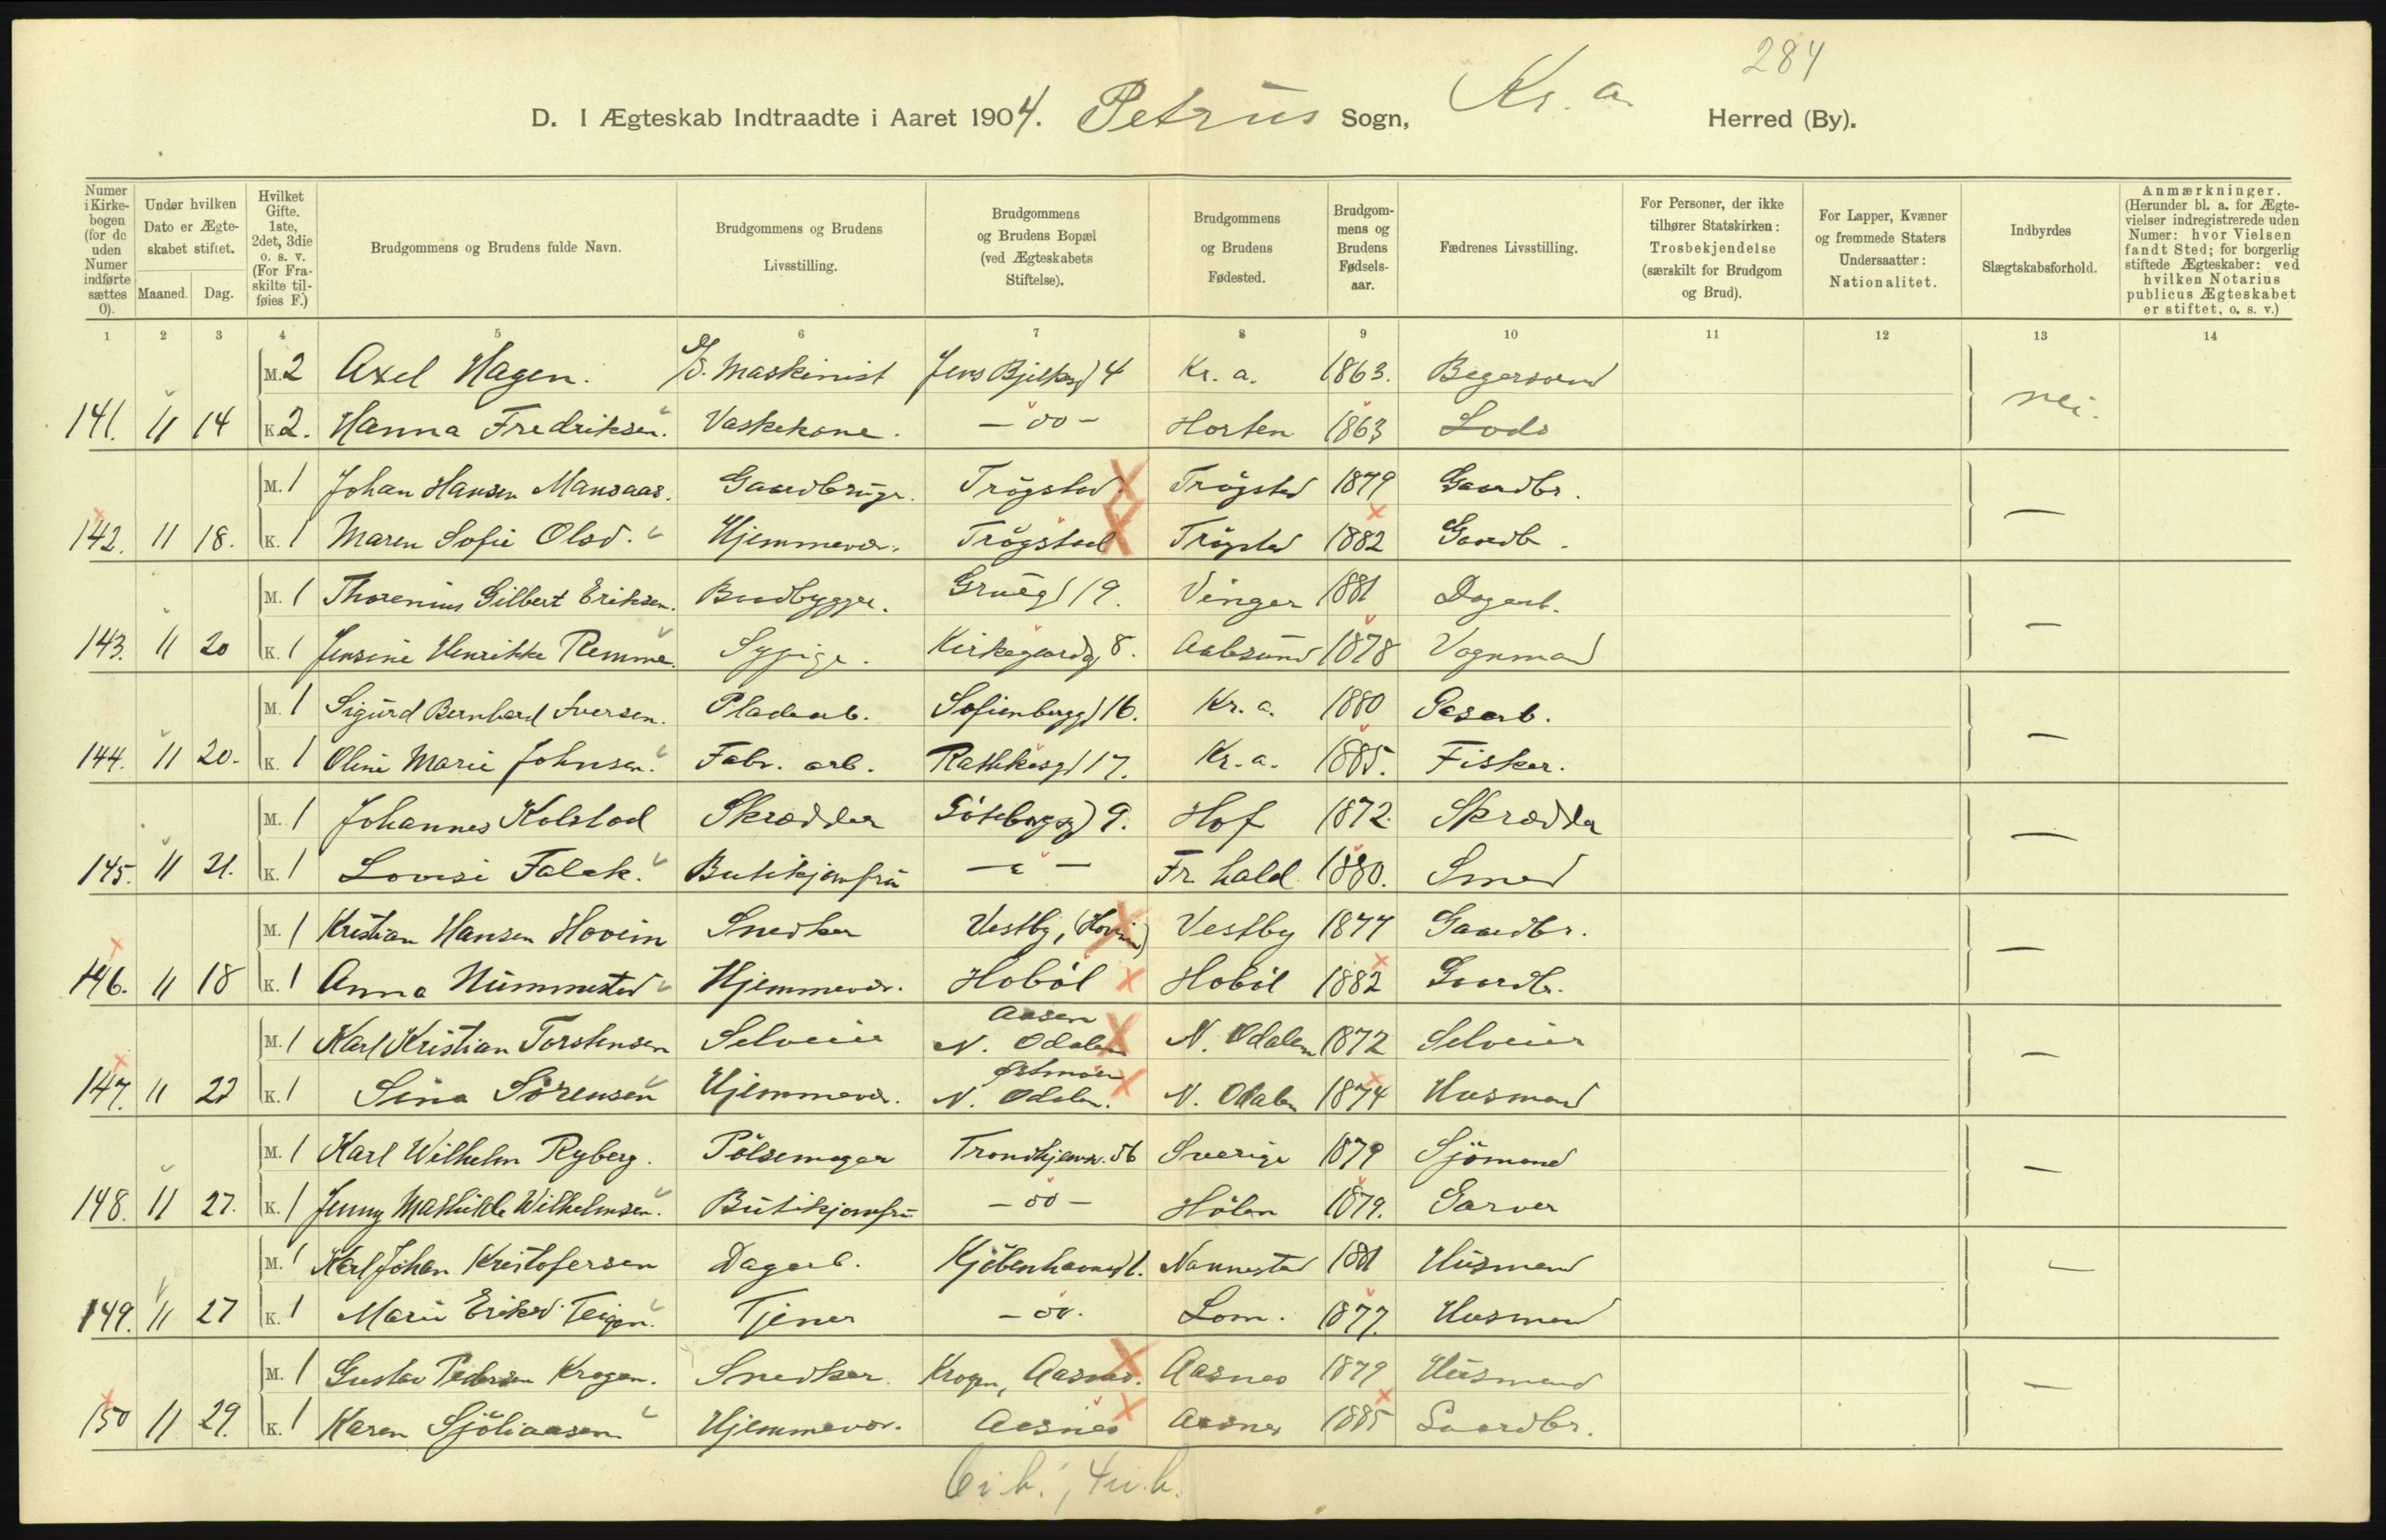 284
D. I Ægteskab Indtraadte i Aaret 1904. Petrus Sogn, Kr. a. Herred (By).
Numer i Kirkebogen (for de uden Numer indførte sættes 0).
Under hvilken Dato er Ægteskabet stiftet.
Maaned. Dag.
Hvilket Gifte. 1ste, 2det, 3die o. s. v. (For Fraskilte tilføies F.)
Brudgommens og Brudens fulde Navn.
Brudgommens og Brudens Livsstilling.
Brudgommens og Brudens Bopæl (ved Ægteskabets Stiftelse).
Brudgommens og Brudens Fødested.
Brudgommens og Brudens Fødselsaar.
Fædrenes Livsstilling.
For Personer, der ikke tilhører Statskirken: Trosbekjendelse (særskilt for Brudgom og Brud).
For Lapper, Kvæner og fremmede Staters Undersaatter: Nationalitet.
Indbyrdes Slægtskabsforhold.
Anmærkninger. (Herunder bl. a. for Ægtevielser indregistrerede uden Numer: hvor Vielsen fandt Sted; for borgerlig stiftede Ægteskaber: ved hvilken Notarius publicus Ægteskabet er stiftet, o. s. v.)
1 2 3 4 5 6 7 8 9 10 11 12 13 14
M. 2 Axel Hagen. Maskinist Jens Bjelkesg 4 Kr. a. 1863.
141. 11 14 K. 2. Hanna Fredriksen. Vaskekone. - do - Horten 1863 Lods nei.
M. 1 Johan Hansen Mansaas. Gaardbruger. Trögstad Trögstad 1879 Gaardbr.
142. 11 18. K. 1 Maren Sofie Olsd. Hjemmevær. Trögstad Trögstad 1882 Gaardb. —
M. 1 Thorenius Gilbert Eriksen. Baadbygger. Grüeg 19. Vinger 1881 Dagarb.
143. 11 20 K. 1 Jensine Henrikke Remme. Sypige. Kirkegaardsg 8. Aalesund 1878 Vognmand —
M. 1 Sigurd Bernhard Iversen. Pladearb. Sofienbergg 16. Kr. a. 1880 Gasarb.
144. 11 20. K. 1 Oline Marie Johnsen. Fabr. arb. Rathkesg 17. Kr. a. 1885. Fisker. —
M. 1 Johannes Kolstad Skrædder Göteborgsg 9. Hof 1872. Skrædder
145. 11 21. K. 1 Lovise Falck. Butikjomfru - " - Fr. hald 1880. Smed —
M. 1 Kristian Hansen Hovin Snedker Vestby, (Hovin) Vestby 1877 Gaardbr.
146. 11 18 K. 1 Anna Nummestad Hjemmevær. Haaböl Haaböl 1882 Gaardb. —
M. 1 Karl Kristian Torstensen Selveier Aasen N. Odalen N. Odalen 1872 Selveier
147. 11 22 K. 1 Sina Sörensen Hjemmevær. N. Odalen. N. Odalen 1874 Husmand —
M. 1 Karl Wilhelm Ryberg. Pölsemager Trondhjemsv. 56 Sverige 1879 Sjömand
148. 11 27. K. 1 Jenny Mathilde Wilhelmsen. Butikjomfru - do - Hölen 1879. Garver —
M. 1 Karl Johan Kristofersen Dagarb. Kjöbenhavnsg 1. Nannestad 1881 Husmand
149. 11 27 K. 1 Marie Eriksd. Teigen. Tjener - do. Lom. 1877. Husmand —
M. 1 Gustav Pedersen Krogen. Snedker. Krogen, Aasnes. Aasnes 1879 Husmand
150 11 29. K. 1 Karen Sjöliaasen Hjemmevær. Aasnes Aasnes 1885 Gaardbr. —
6 i. b., 4 u. b.